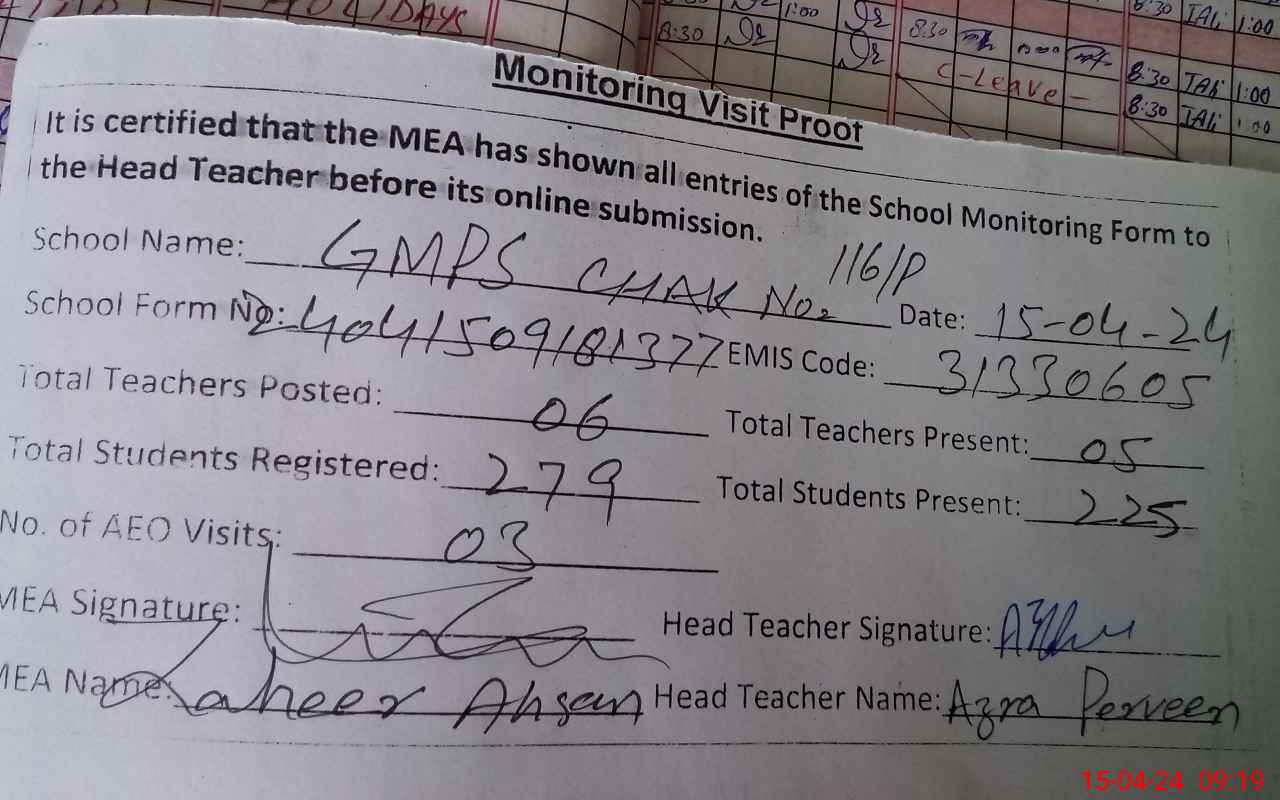 DAYS
1:00
8:30
8:30
8:30 TAli 1:00
C-Leave -
8:30 TAli 1:00
8:30 TAli 1:00
Monitoring Visit Proof
It is certified that the MEA has shown all entries of the School Monitoring Form to
the Head Teacher before its online submission.
School Name: GMPS CHAK No. 116/P Date: 15-04-24
School Form No: 24041509181377 EMIS Code: 31330605
Total Teachers Posted: 06 Total Teachers Present: 05
Total Students Registered: 279 Total Students Present: 225
No. of AEO Visits: 03
MEA Signature: Head Teacher Signature:
MEA Name: Zaheer Ahsan Head Teacher Name: Azra Perveen
15-04-24 09:19